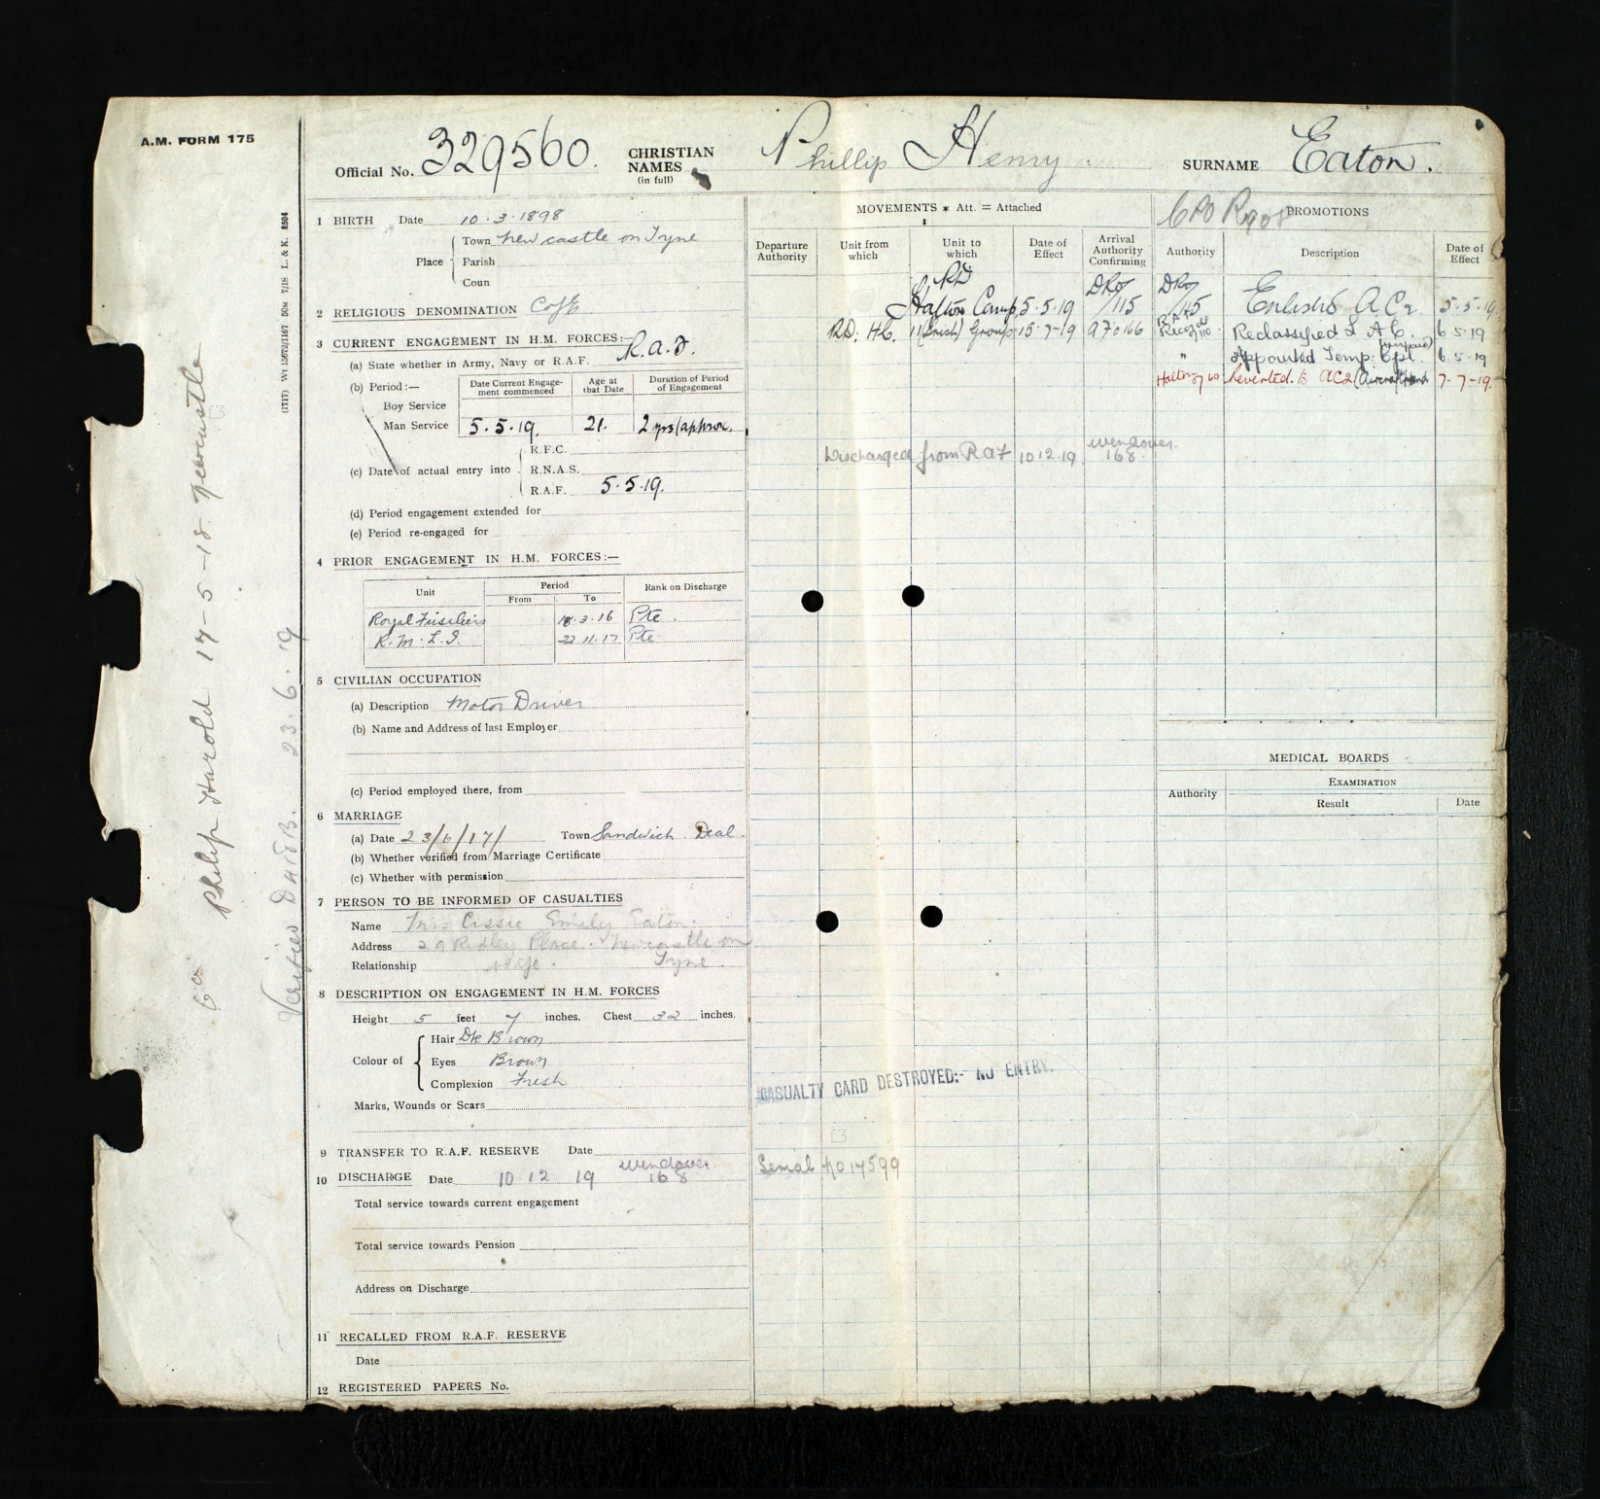 A.M. FORM 175
Official No. 329560. CHRISTIAN NAMES (in full) Phillip Henry SURNAME Eaton.
1 BIRTH Date 10.3.1898
Place Town Newcastle on Tyne
Parish
Coun
2 RELIGIOUS DENOMINATION CofE
3 CURRENT ENGAGEMENT IN H.M. FORCES:—
(a) State whether in Army, Navy or R.A.F. R.A.F.
(b) Period:— Date Current Engagement commenced Age at that Date Duration of Period of Engagement
Boy Service
Man Service 5.5.19. 21. 2 yrs (approx.
(c) Date of actual entry into R.F.C.
R.N.A.S.
R.A.F. 5.5.19.
(d) Period engagement extended for
(e) Period re-engaged for
4 PRIOR ENGAGEMENT IN H.M. FORCES:—
Unit Period Rank on Discharge
From To
Royal Fusiliers 18.3.16 Pte.
R.M.L.I. 22.11.17 Pte
5 CIVILIAN OCCUPATION
(a) Description Motor Driver
(b) Name and Address of last Employer
(c) Period employed there, from
6 MARRIAGE
(a) Date 23/6/17/ Town Sandwich Deal.
(b) Whether verified from Marriage Certificate
(c) Whether with permission
7 PERSON TO BE INFORMED OF CASUALTIES
Name Mrs Cissie Emily Eaton.
Address 29 Ridley Place. Newcastle on
Relationship Wife. Tyne.
8 DESCRIPTION ON ENGAGEMENT IN H.M. FORCES
Height 5 feet 7 inches. Chest 32 inches.
Colour of Hair Dk Brown
Eyes Brown
Complexion Fresh
Marks, Wounds or Scars
9 TRANSFER TO R.A.F. RESERVE Date
10 DISCHARGE Date 10 12 19 Wendover 168
Total service towards current engagement
Total service towards Pension
Address on Discharge
11 RECALLED FROM R.A.F. RESERVE
Date
12 REGISTERED PAPERS No.
MOVEMENTS * Att. = Attached
Departure Authority Unit from which Unit to which Date of Effect Arrival Authority Confirming
RD Halton Camp 5.5.19 DRO/115
RD. HC. 11 (Irish) Group 15-7-19
Discharged from RAF 10.12.19 Wendover 168.
CASUALTY CARD DESTROYED:- NO ENTRY.
Serial No 14599
PROMOTIONS
Authority Description Date of Effect
DRO/115 Enlisted AC2 5.5.19
Reclassified LAC. 6 5 19
" Appointed Temp: Cpl. (unpaid) 6.5.19
Reverted to AC2 (Aircrafthand 7-7-19.
MEDICAL BOARDS
Authority EXAMINATION
Result Date
Philip Harold 17-5-18 Newcastle
Verified 23.6.19